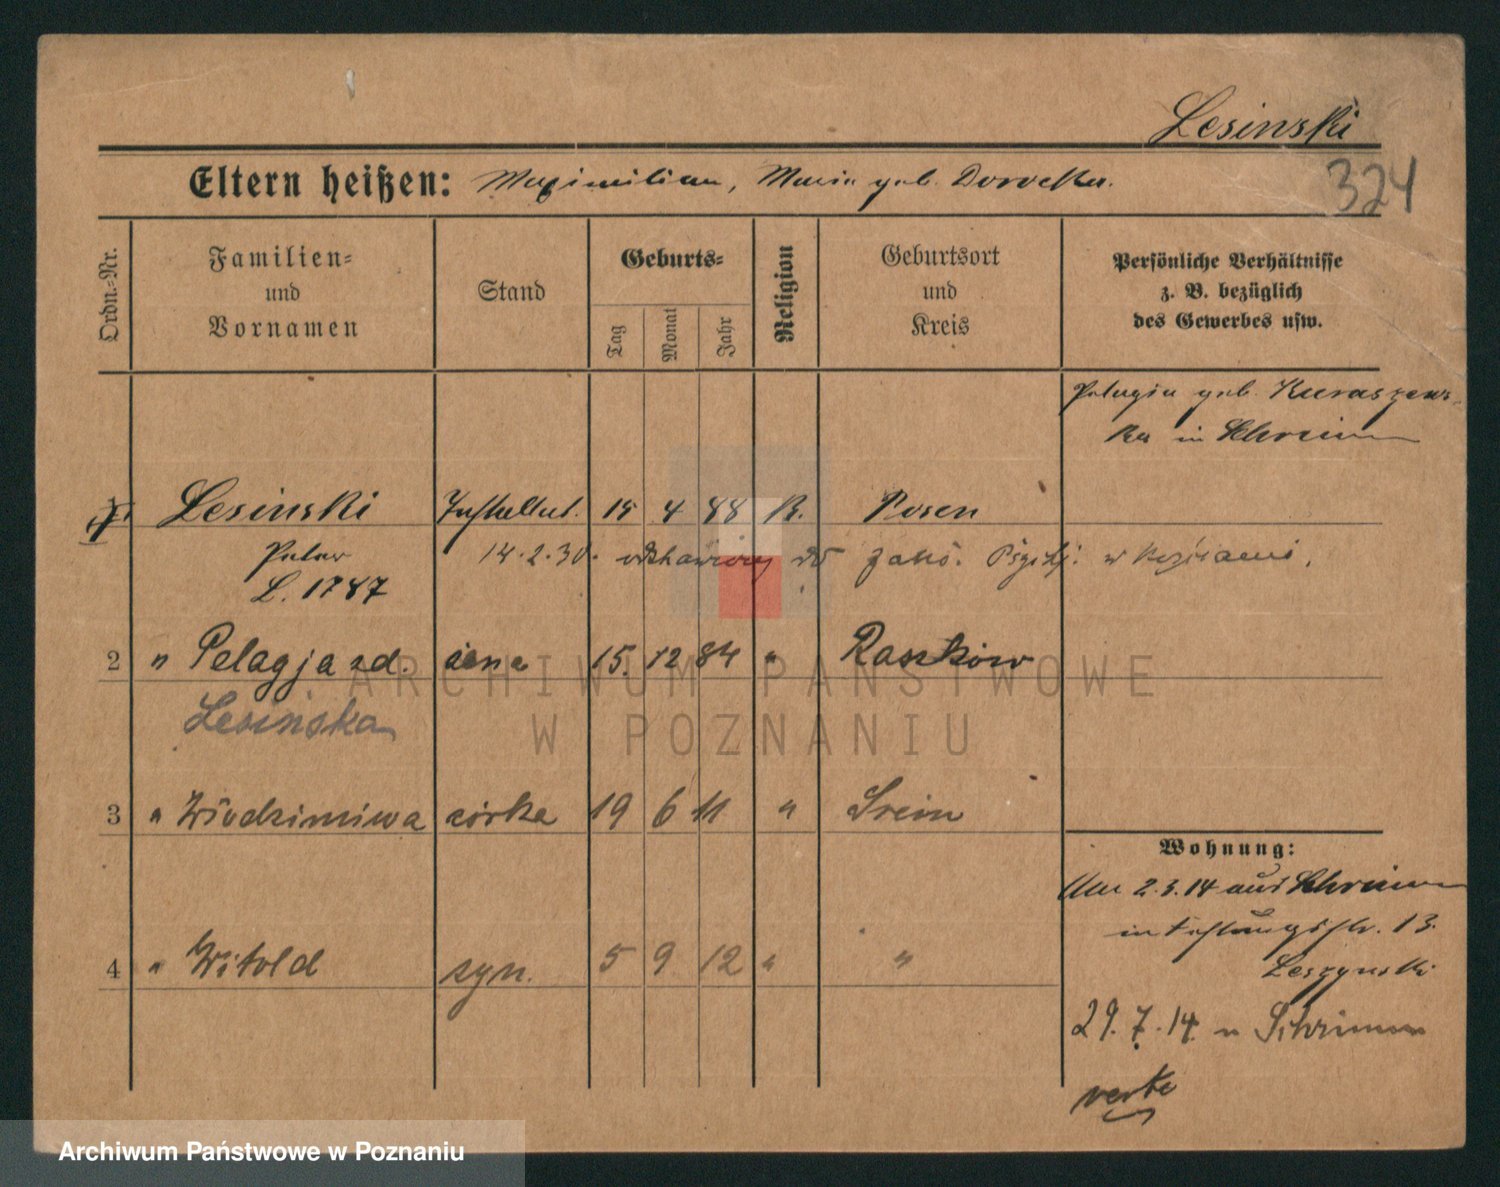 Lesinski
Eltern heißen: Maximilian, Maria geb. Dorocka.
324
Ordn.-Nr.
Familien-
und
Vornamen
Stand
Geburts-
Tag
Monat
Jahr
Religion
Geburtsort
und
Kreis
Persönliche Verhältnisse
z. B. bezüglich
des Gewerbes usw.
Pelagia geb. Kuraszews-
ka in Schrimm
1 Lesinski 4 88 K. Posen
Peter 14.2.30. do w
L. 1787
2 " Pelagja zd. żona 15. 12 84 " Raszków
Lesinska
3 " Włodzimira córka 19 6 11 " Śrem
Wohnung:
2.3.14 aus Schrimm
in 13.
Leszynski
4 " Witold syn. 5 9 12 " "
29.7.14. n Schrimm
verte
ARCHIWUM PAŃSTWOWE
W POZNANIU
Archiwum Państwowe w Poznaniu